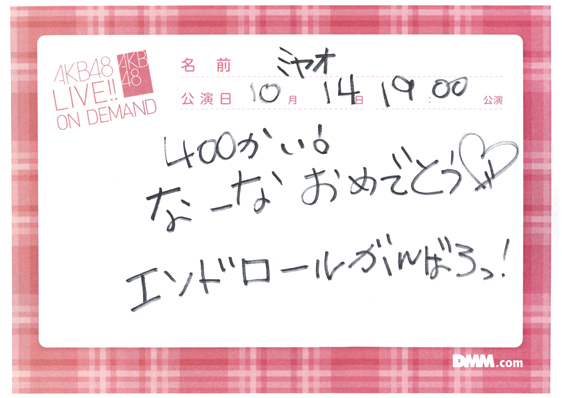 AKB48
LIVE!!
ON DEMAND
AKB
48
名前 ミヤオ
公演日 10月 14日 19:00 公演
400かい!
なーな おめでとう♡
エンドロールがんばろっ!
DMM.com